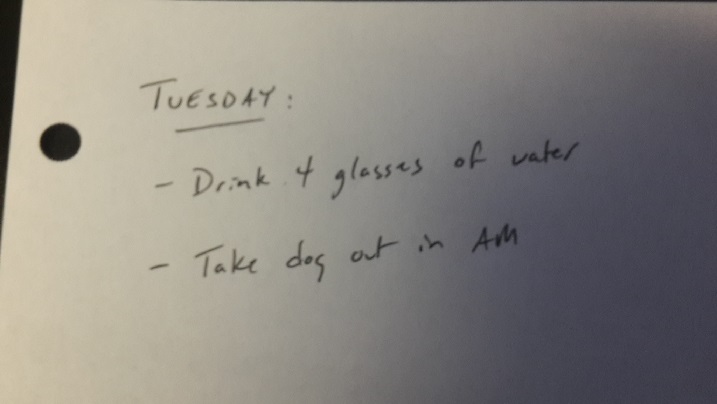 TUESDAY:
- Drink 4 glasses of water
- Take dog out in AM